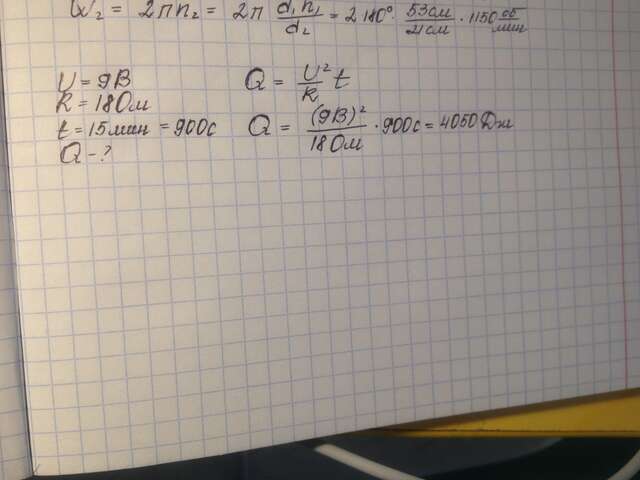 W₂ = 2πn₂ = 2π d₁n₁/d₂ = 2·180°· 53см/21см · 1150 об/мин
U = 9В
R = 18Ом
t = 15мин = 900с
Q - ?
Q = U²/R t
Q = (9В)²/18Ом · 900с = 4050Дж